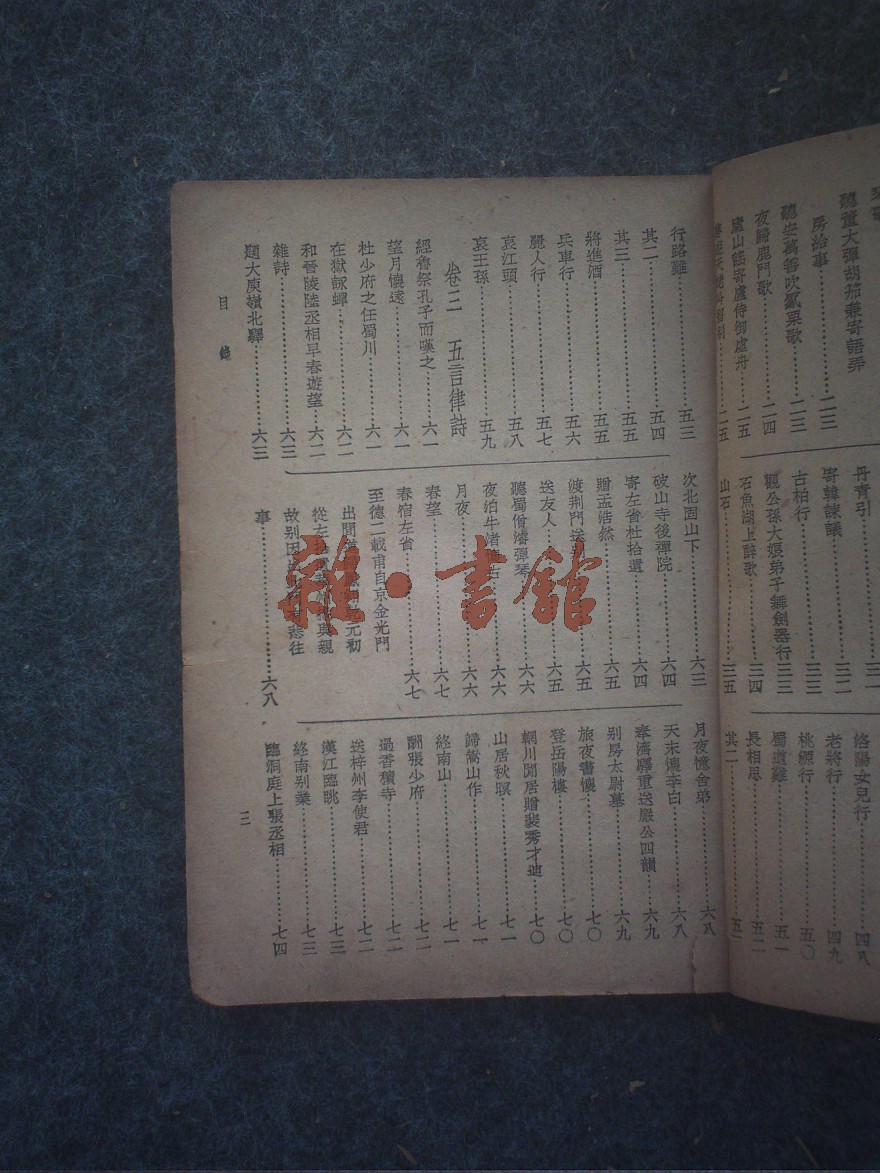 聽董大彈胡笳兼寄語弄
房給事……二三
聽安萬善吹觱栗歌……二三
夜歸鹿門歌……二四
廬山謠寄盧侍御虛舟……二五
……二五
丹青引……三一
寄韓諫議……三二
古柏行……三三
觀公孫大娘弟子舞劍器行……三三
石魚湖上醉歌……三四
山石……三五
洛陽女兒行……四八
老將行……四九
桃源行……五〇
蜀道難……五一
長相思……五二
其二……五二
行路難……五三
其二……五四
其三……五五
將進酒……五五
兵車行……五六
麗人行……五七
哀江頭……五八
哀王孫……五九
卷三 五言律詩
經魯祭孔子而嘆之……六一
望月懷遠……六一
杜少府之任蜀川……六一
在獄詠蟬……六二
和晉陵陸丞相早春遊望……六二
雜詩……六三
題大庾嶺北驛……六三
次北固山下……六三
破山寺後禪院……六四
寄左省杜拾遺……六四
贈孟浩然……六五
渡荊門送別……六五
送友人……六五
聽蜀僧濬彈琴……六六
夜泊牛渚懷古……六六
月夜……六六
春望……六七
春宿左省……六七
至德二載甫自京金光門
出間道
元初
從左
與親
故別因
悲往
事……六八
月夜憶舍弟……六八
天末懷李白……六八
奉濟驛重送嚴公四韻……六九
別房太尉墓……六九
旅夜書懷……七〇
登岳陽樓……七〇
輞川閒居贈裴秀才迪……七〇
山居秋暝……七一
歸嵩山作……七一
終南山……七一
酬張少府……七二
過香積寺……七二
送梓州李使君……七二
漢江臨眺……七三
終南別業……七三
臨洞庭上張丞相……七四
目錄
三
雜·書館